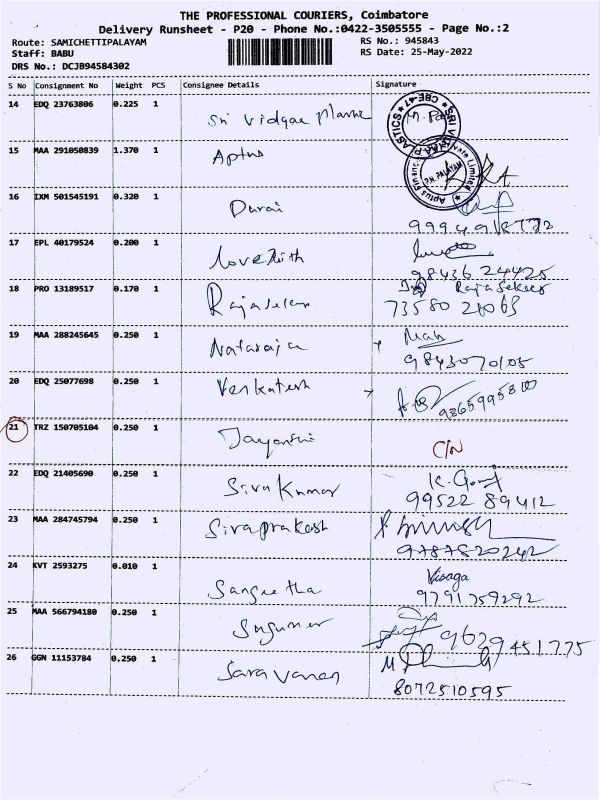 THE PROFESSIONAL COURIERS, Coimbatore
Delivery Runsheet - P20 - Phone No.:0422-3505555 - Page No.:2
Route: SAMICHETTIPALAYAM RS No.: 945843
Staff: BABU RS Date: 25-May-2022
DRS No.: DCJB94584302
S No Consignment No Weight PCS Consignee Details Signature
14 EDQ 23763806 0.225 1 Sri Vidyaa
15 MAA 291050839 1.370 1 Aptus
P.N. PALAYAM
16 IXM 501545191 0.320 1 Durai
17 EPL 40179524 0.200 1
98436 24425
18 PRO 13189517 0.170 1 Rajasekar Rajasekar
73580 21065
19 MAA 288245645 0.250 1 Nataraja
9843070105
20 EDQ 25077698 0.250 1 Venkatesh
21 TRZ 150705104 0.250 1 Jayanthi C/N
22 EDQ 21405690 0.250 1 Siva Kumar
99522 89412
23 MAA 284745794 0.250 1 Sivaprakash
9787820242
24 KVT 2593275 0.010 1 Sangeetha Visaga
9791759292
25 MAA 566794180 0.250 1 Sugumar
9629451775
26 GGN 11153784 0.250 1 Saravanan
8072510595